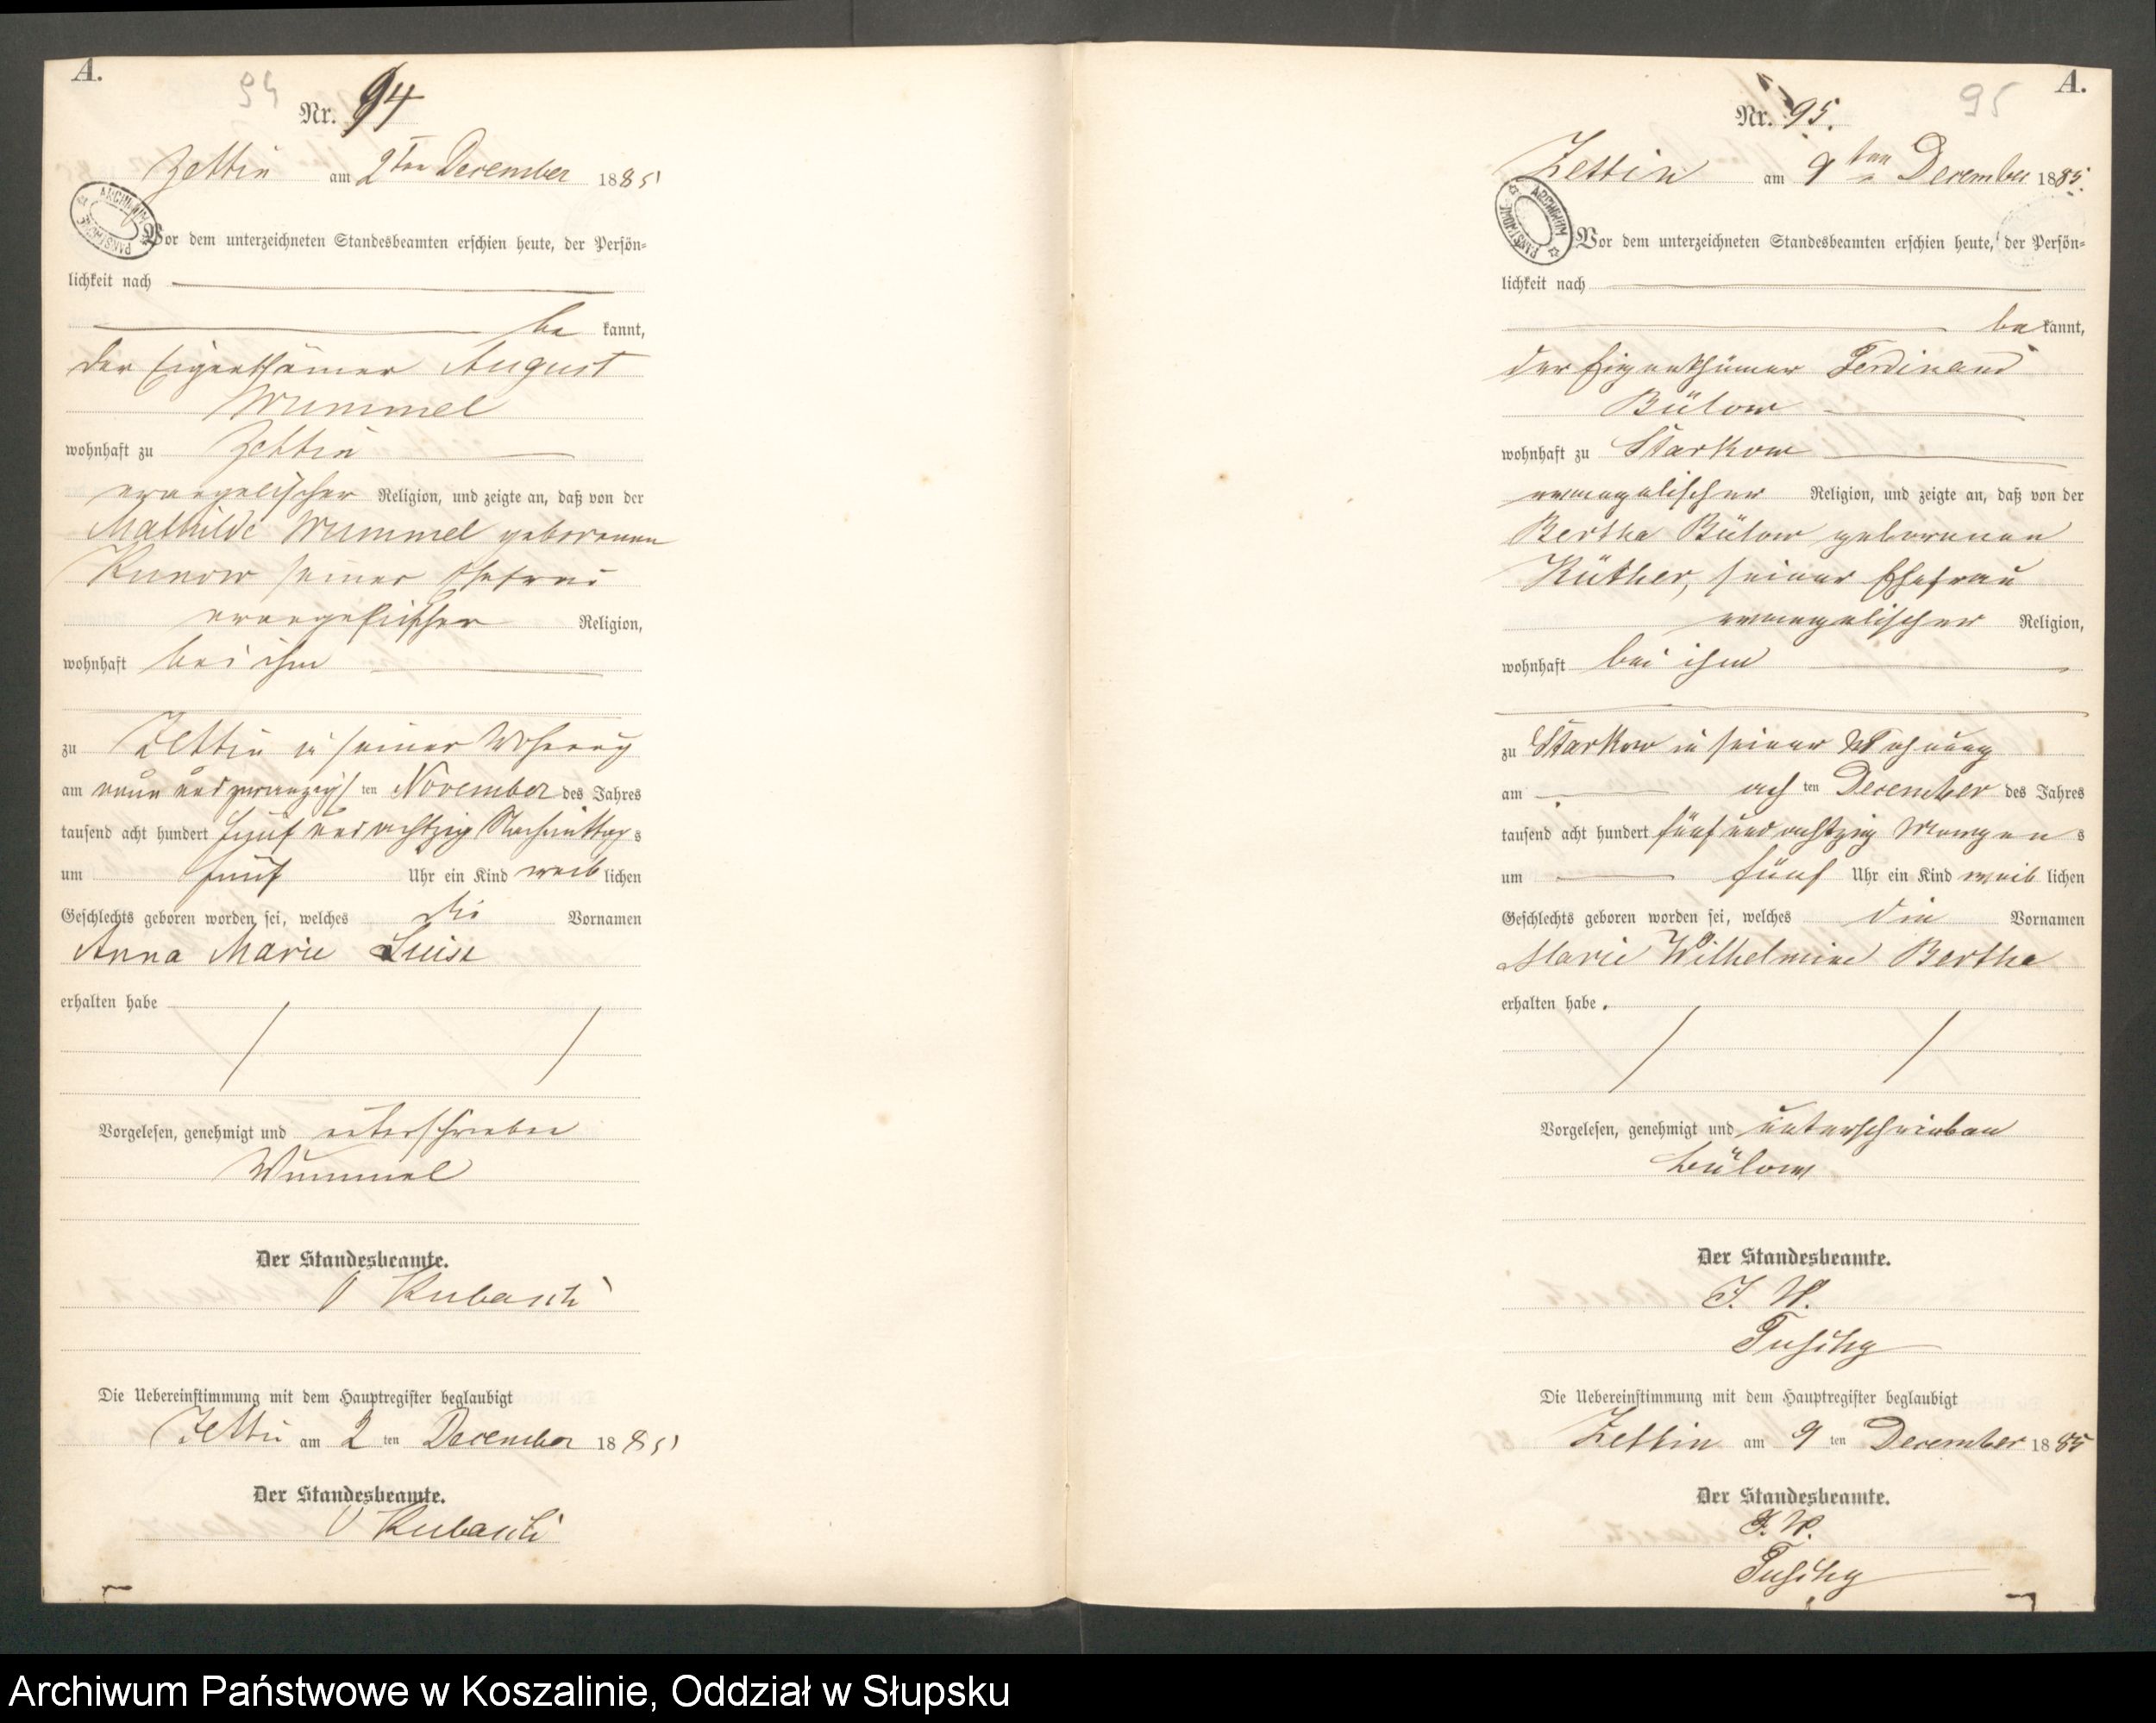 A.
94
Nr. 94
Zettin am 2ten December 1885
Vor dem unterzeichneten Standesbeamten erschien heute, der Persön=
lichkeit nach
be kannt,
der Eigenthümer August
Wummel
wohnhaft zu Zettin
evangelischer Religion, und zeigte an, daß von der
Mathilde Wummel geborenen
Kunow seiner Ehefrau
evangelischer Religion,
wohnhaft bei ihm
zu Zettin in seiner Wohnung
am neun und zwanzigs ten November des Jahres
tausend acht hundert fünf und achtzig Nachmittag s
um fünf Uhr ein Kind weib lichen
Geschlechts geboren worden sei, welches die Vornamen
Anna Marie Luise
erhalten habe
Vorgelesen, genehmigt und unterschrieben
Wummel
Der Standesbeamte.
Die Uebereinstimmung mit dem Hauptregister beglaubigt
Zettin am 2 ten December 1885
Der Standesbeamte.
A.
95
Nr. 95.
Zettin am 9ten December 1885.
ARCHIWUM PAŃSTWOWE
Vor dem unterzeichneten Standesbeamten erschien heute, der Persön=
lichkeit nach
be kannt,
der Eigenthümer Ferdinand
Bülow
wohnhaft zu Starkow
evangelischer Religion, und zeigte an, daß von der
Bertha Bülow geborenen
Küther, seiner Ehefrau
evangelischer Religion,
wohnhaft bei ihm
zu Starkow in seiner Wohnung
am ach ten December des Jahres
tausend acht hundert fünf und achtzig Morgen s
um fünf Uhr ein Kind weib lichen
Geschlechts geboren worden sei, welches die Vornamen
Marie Wilhelmine Bertha
erhalten habe.
Vorgelesen, genehmigt und unterschrieben
Bülow
Der Standesbeamte.
J. V.
Die Uebereinstimmung mit dem Hauptregister beglaubigt
Zettin am 9 ten December 1885
Der Standesbeamte.
J. V.
Archiwum Państwowe w Koszalinie, Oddział w Słupsku